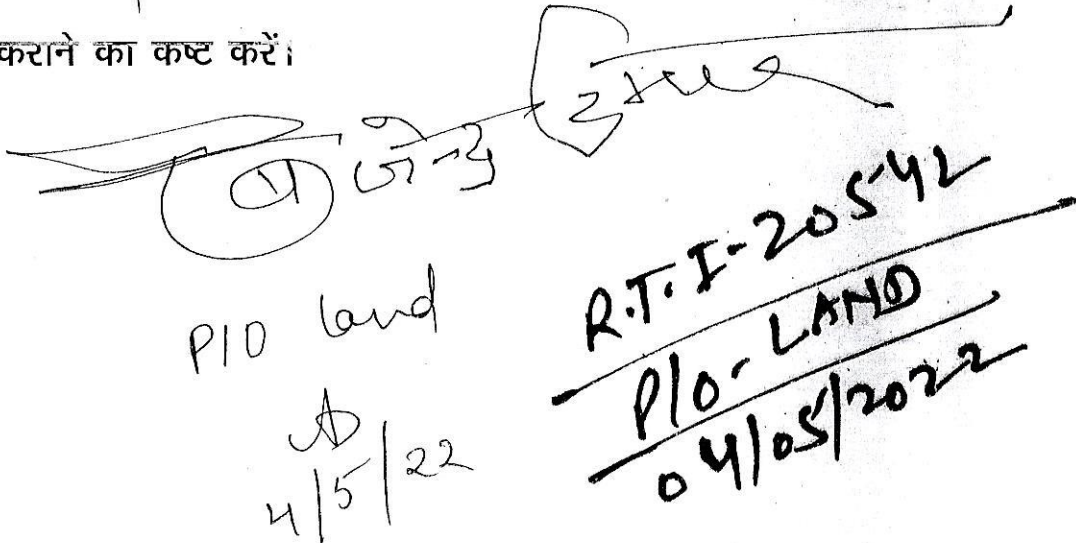 कराने का कष्ट करें।
PIO land
4/5/22
R.T.I-20542
P/O-LAND
04/05/2022